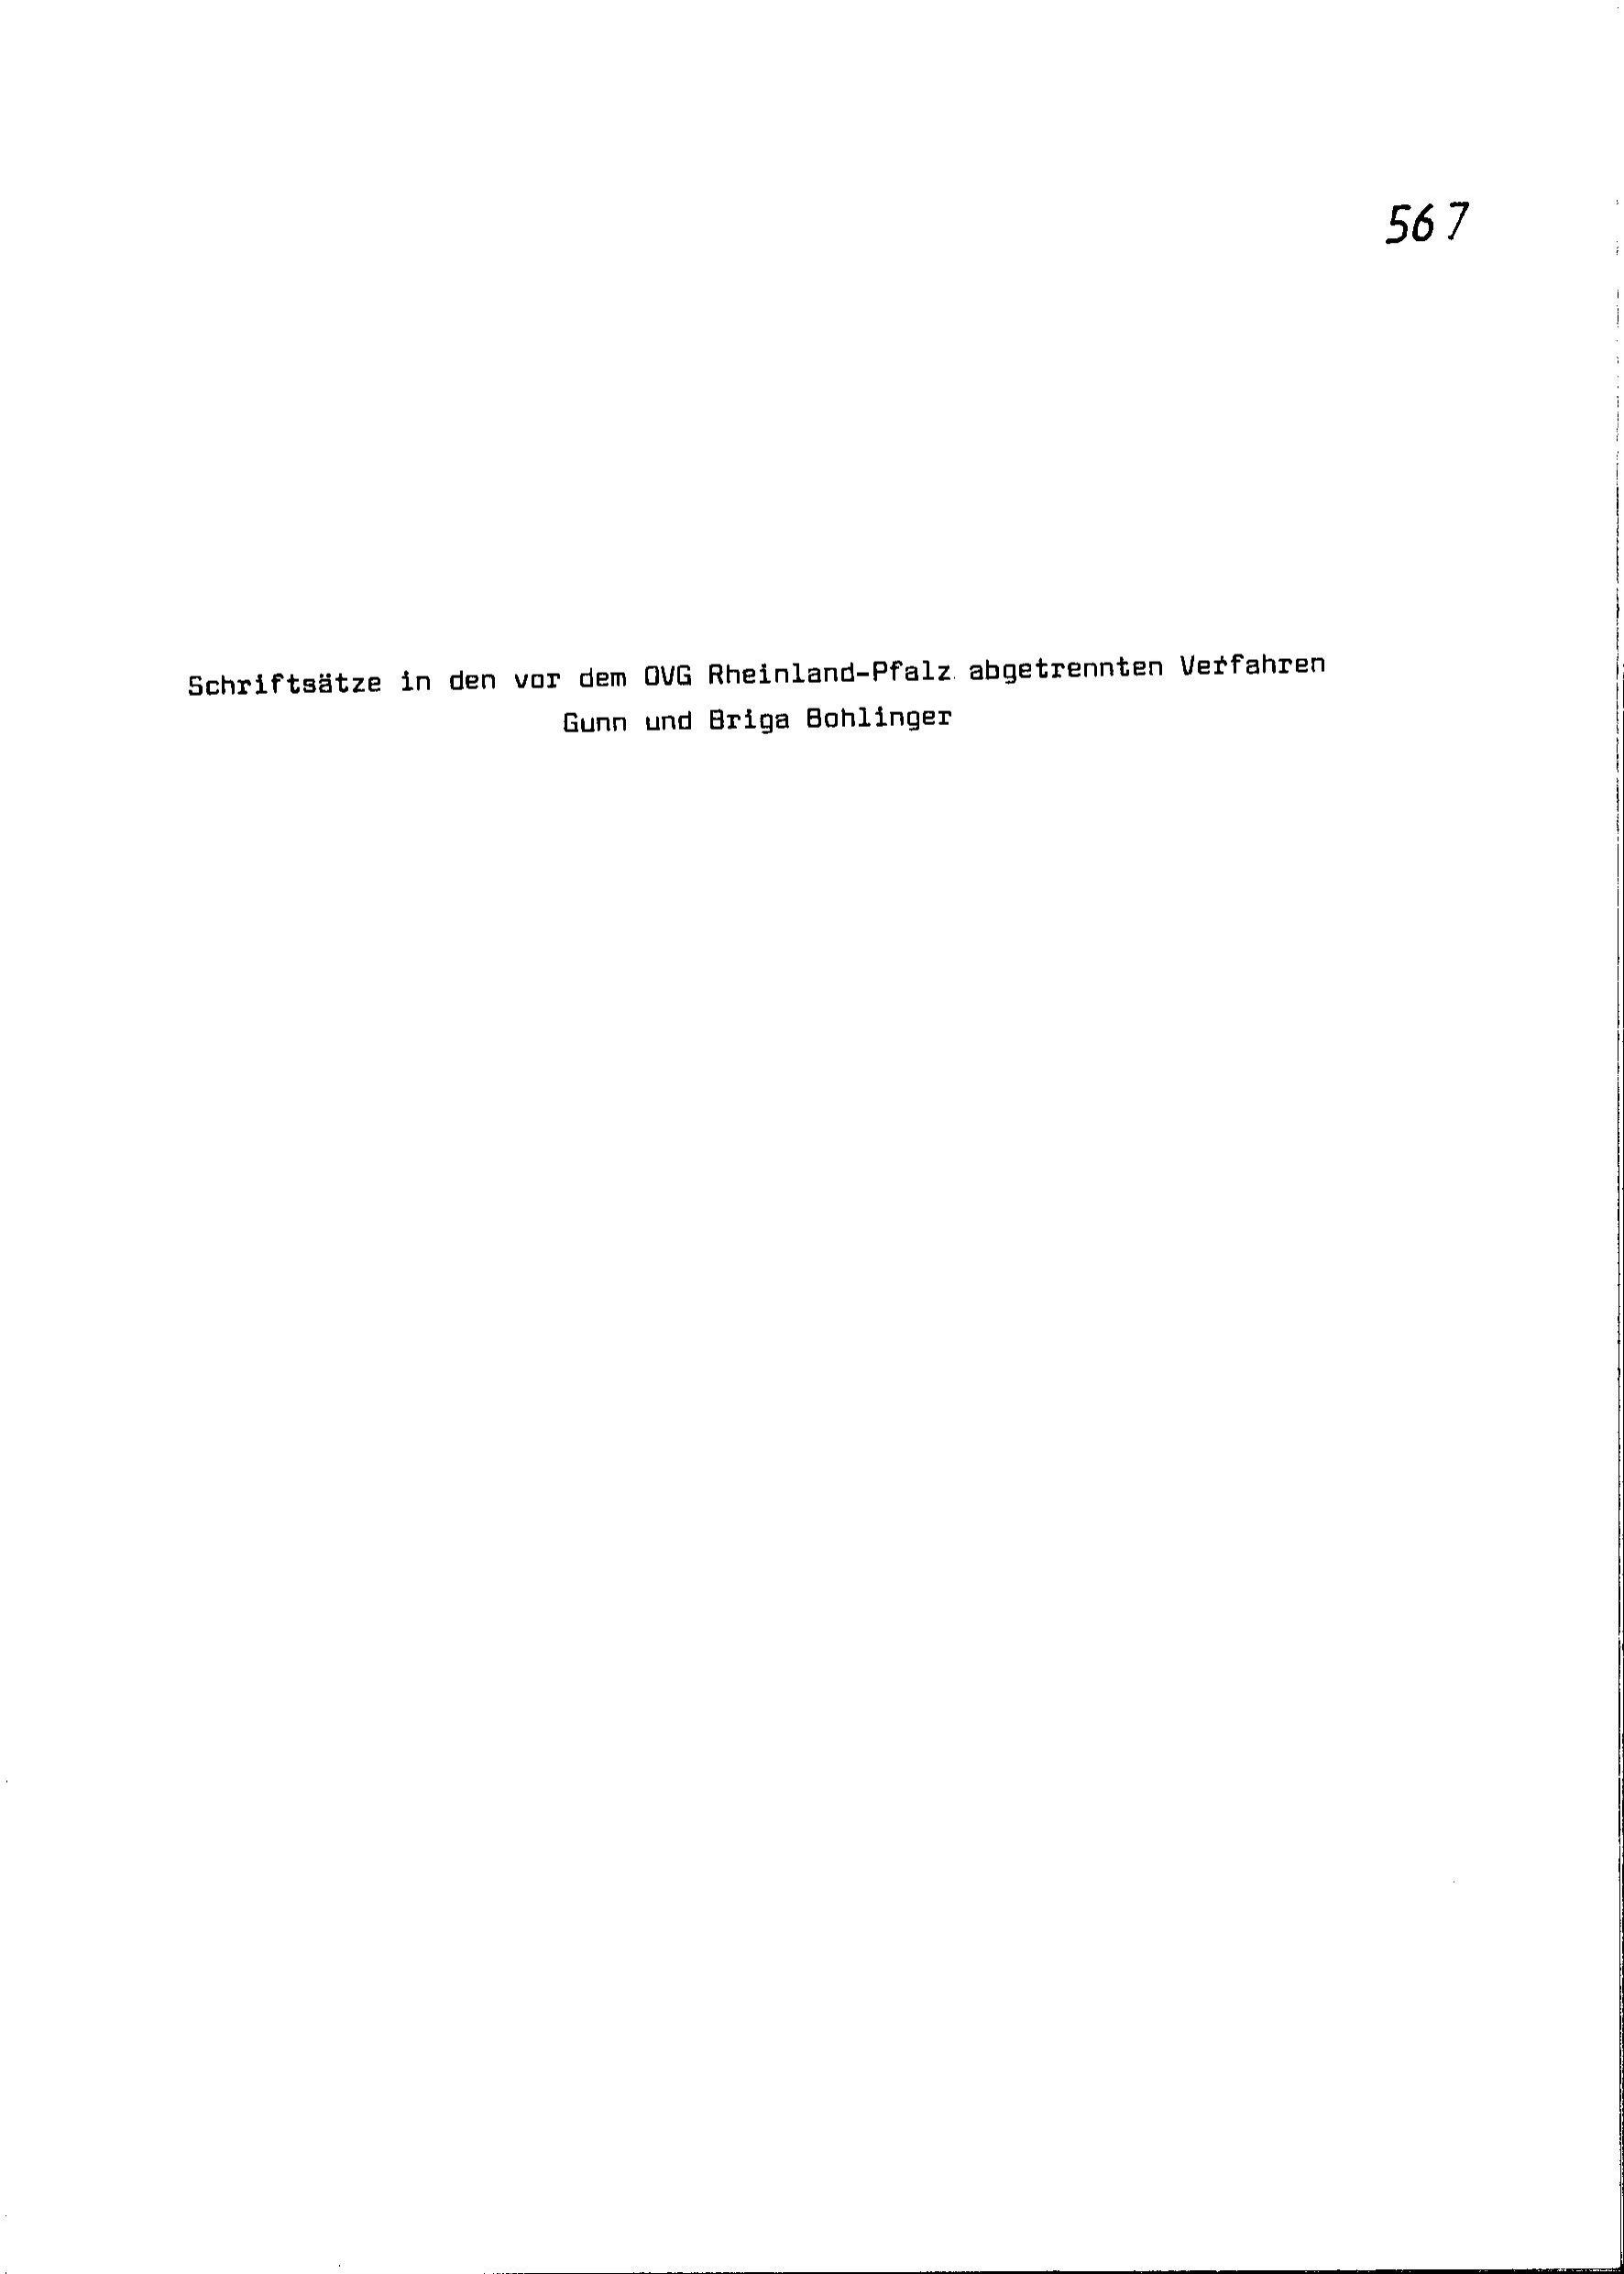 567
Schriftsätze in den vor dem OVG Rheinland-Pfalz abgetrennten Verfahren
Gunn und Briga Bohlinger